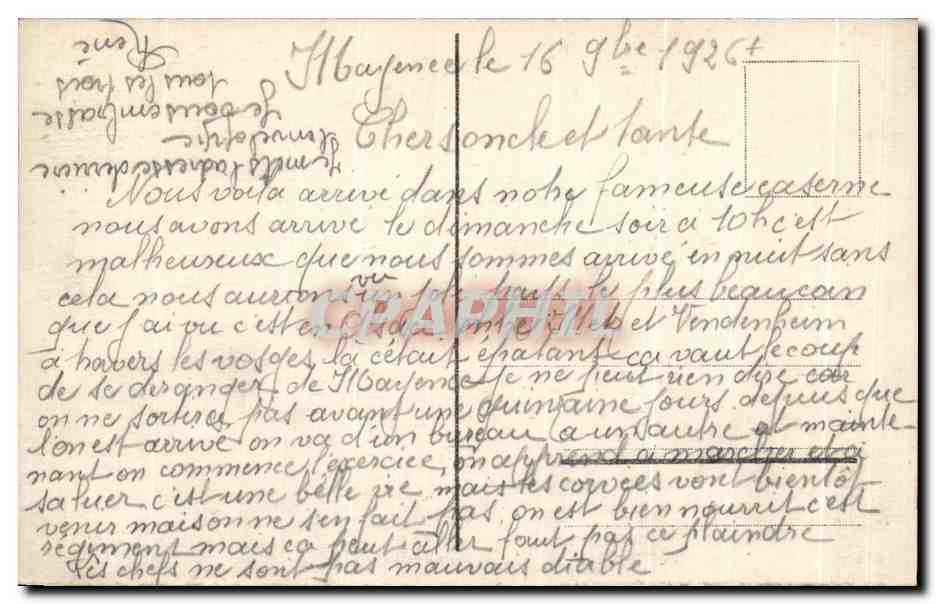 Mayence le 16 9bre 1926
Cher oncle et tante
Nous voila arrivé dans notre fameuse caserne
nous avons arrivé le dimanche soir a 10h c'est
malheureux que nous sommes arrivé en nuit sans
cela nous aurion vu un joli pays le plus beau coin
que j'ai vu c'est en Alsace entre Metz et Vendenheim
a travers les vosges la c'était épatant ca vaut le coup
de se deranger de Mayence je ne peut rien dire car
on ne sortires pas avant une quinzaine jours depuis que
l'on est arrivé on va d'un bureau a un autre et mainte
nant on commence l'exercice on apprend a marcher et a
saluer c'est une belle vie mais les corvées vont bientôt
venir mais on ne s'en fait pas on est bien nourrit c'est
regiment mais ca peut aller faut pas ce plaindre
les chefs ne sont pas mauvais diable
Je mets l'adresse derriere
enveloppe
Je vous embrasse
tous les trois
René
CPAPHIL